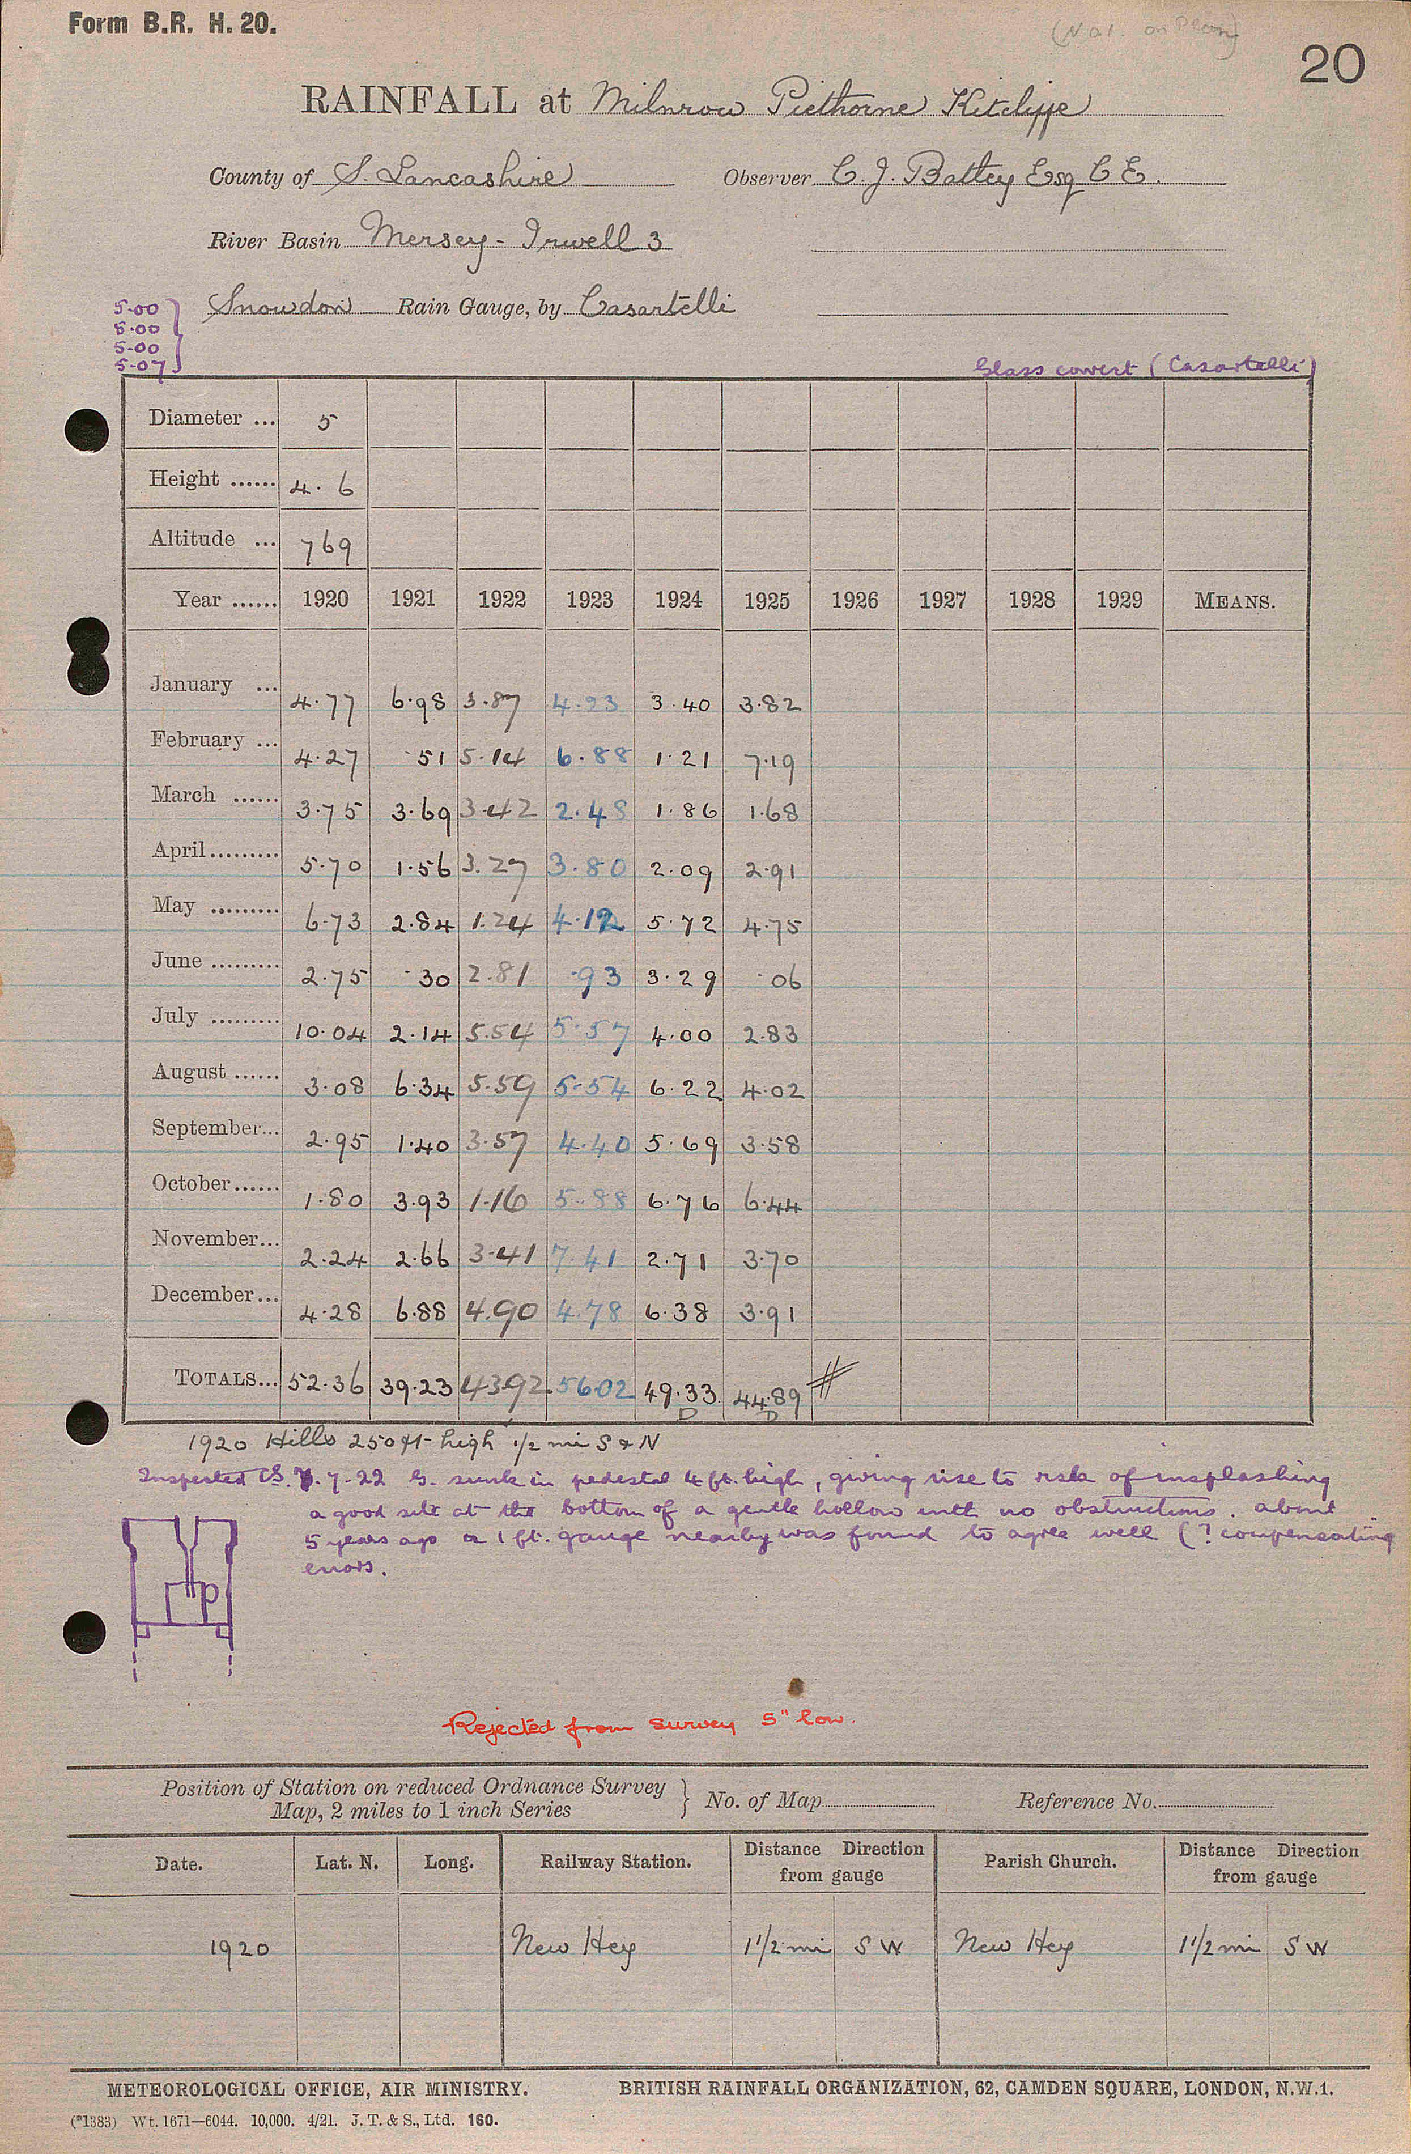 Form B.R. H. 20.
(Not on Plan)
20
RAINFALL at Milnrow Piethorne Kitcliffe
County of S. Lancashire Observer C. J. Battey Esq C E.
River Basin Mersey - Irwell 3
Snowdon Rain Gauge, by Casartelli
5.00
5.00
5.00
5.07
Glass correct (Casartelli)
Diameter ... 5
Height ...... 4. 6
Altitude ... 769
Year ...... 1920 1921 1922 1923 1924 1925 1926 1927 1928 1929 MEANS.
January ... 4.77 6.98 3.87 4.23 3.40 3.82
February ... 4.27 .51 5.14 6.88 1.21 7.19
March ...... 3.75 3.69 3.42 2.48 1.86 1.68
April......... 5.70 1.56 3.27 3.80 2.09 2.91
May ......... 6.73 2.84 1.24 4.12 5.72 4.75
June ......... 2.75 .30 2.81 .93 3.29 .06
July ......... 10.04 2.14 5.54 5.57 4.00 2.83
August ...... 3.08 6.34 5.59 5.54 6.22 4.02
September... 2.95 1.40 3.57 4.40 5.69 3.58
October...... 1.80 3.93 1.16 5.88 6.76 6.44
November... 2.24 2.66 3.41 7.41 2.71 3.70
December... 4.28 6.88 4.90 4.78 6.38 3.91
TOTALS... 52.36 39.23 43.92 56.02 49.33 44.89 #
D D
1920 Hills 250 ft high 1/2 mi S & N
Inspected 7-22 G. sunk in pedestal 4 ft. high, giving rise to risk of insplashing
a good site at the bottom of a gentle hollow with no obstructions. about
5 years ago a 1 ft. gauge nearby was found to agree well (? compensating
errors.
Rejected from survey 5" low.
Position of Station on reduced Ordnance Survey
Map, 2 miles to 1 inch Series } No. of Map Reference No.
Date. Lat. N. Long. Railway Station. Distance Direction from gauge Parish Church. Distance Direction from gauge
1920 New Hey 1 1/2 mi S W New Hey 1 1/2 mi S W
METEOROLOGICAL OFFICE, AIR MINISTRY. BRITISH RAINFALL ORGANIZATION, 62, CAMDEN SQUARE, LONDON, N.W.1.
(*1383) Wt. 1671—6044. 10,000. 4/21. J. T. & S., Ltd. 160.